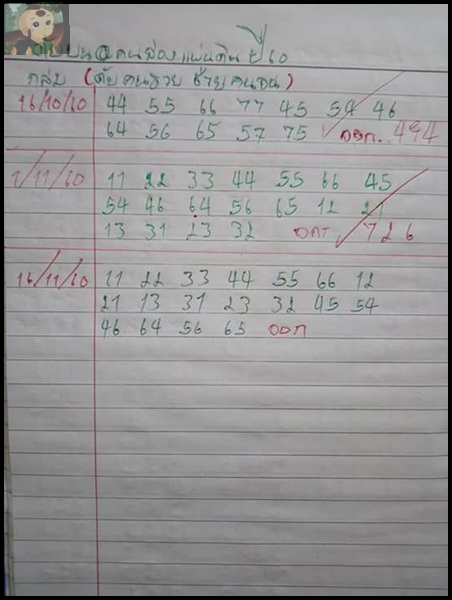 บน @ คนสองแผ่นดิน ปี 60
กลุ่ม (ดับคนรวย ช่วยคนจน)
16/10/60 44 55 66 77 45 54 46
64 56 65 57 75 ออก. 494
1/11/60 11 22 33 44 55 66 45
54 46 64 56 65 12 21
13 31 23 32 ออก 726
16/11/60 11 22 33 44 55 66 12
21 13 31 23 32 45 54
46 64 56 65 ออก